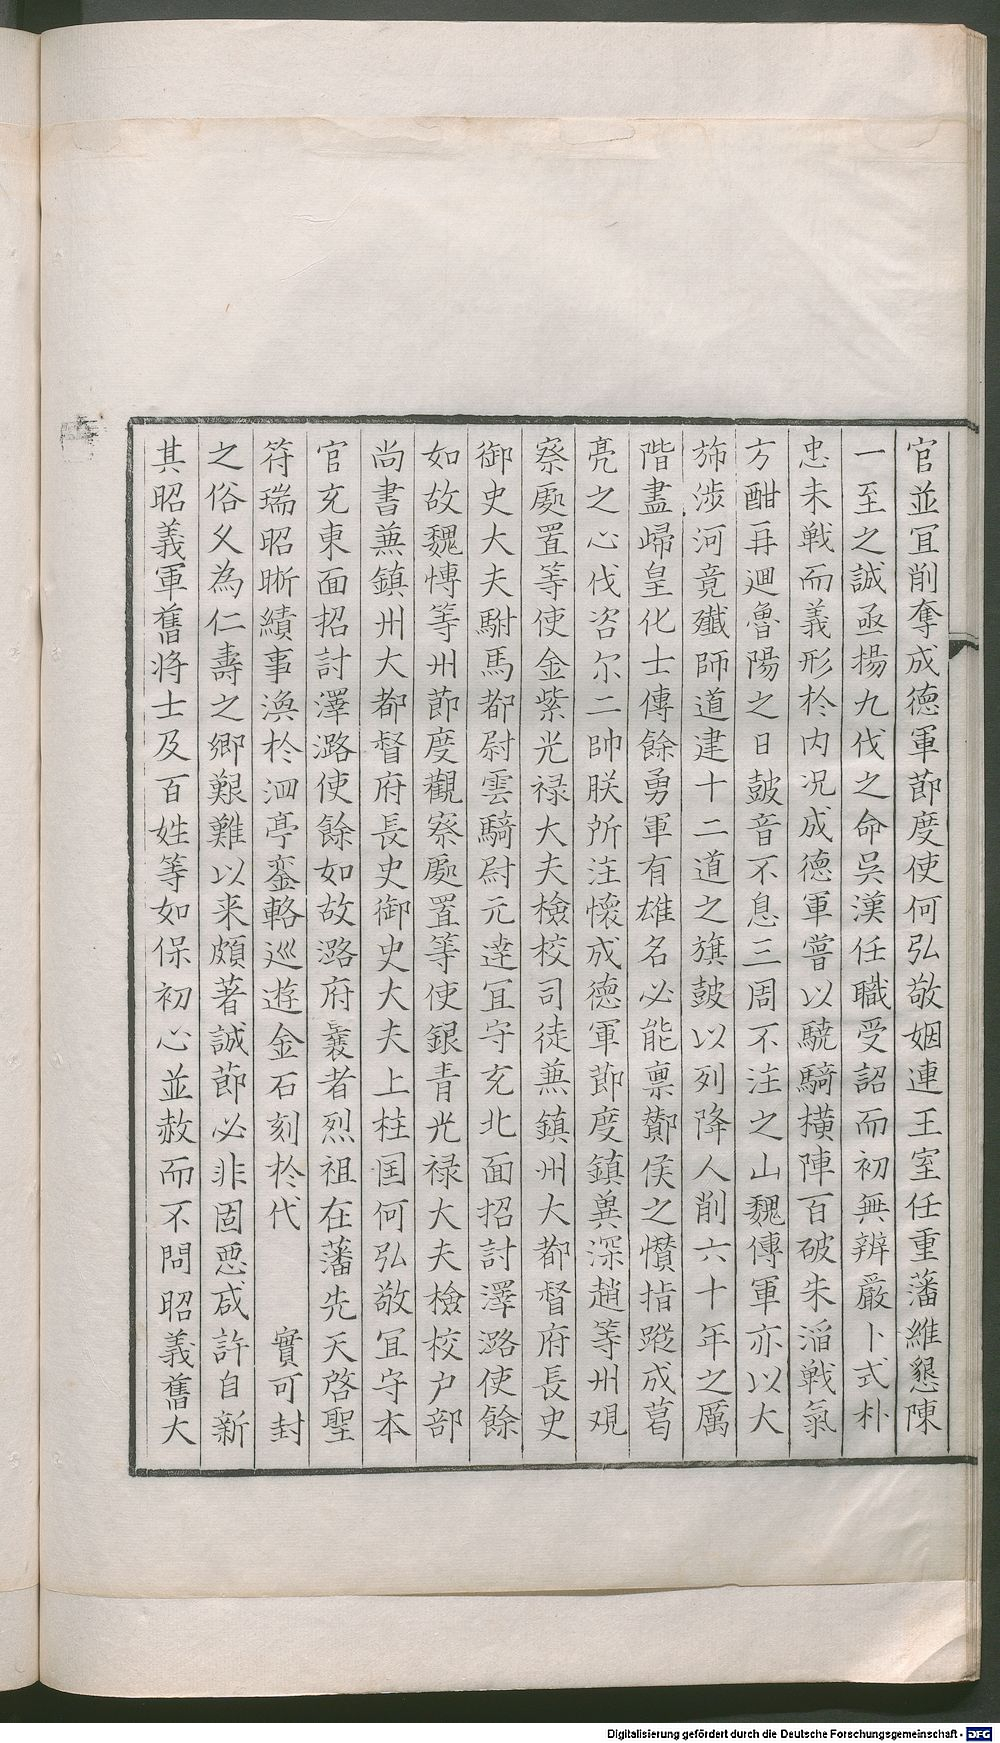 官並宜削奪成德軍節度使何弘敬姻連王室任重藩維懇陳
一至之誠亟揚九伐之命吳漢任職受詔而初無辦嚴卜式朴
忠未戦而義形扵内况成德軍嘗以驍騎橫陣百破朱滔戦氣
方酣再迴魯陽之日鼓音不息三周不注之山魏傳軍亦以大
旆涉河竟殲師道建十二道之旗鼓以列降人削六十年之厲
階盡歸皇化士傳餘勇軍有雄名必能禀酇侯之懫指蹤成葛
亮之心伐咨尔二帥朕所注懷成德軍節度鎮兾深趙等州観
察處置等使金紫光禄大夫檢校司徒兼鎮州大都督府長史
御史大夫駙馬都尉雲騎尉元逵宜守充北面招討澤潞使餘
如故魏愽等州節度觀察處置等使銀青光禄大夫檢校户部
尚書兼鎮州大都督府長史御史大夫上柱国何弘敬宜守本
官充東面招討澤潞使餘如故潞府曩者烈祖在藩先天啓聖
符瑞昭晰績事渙扵泗亭鑾輅巡遊金石刻扵代　實可封
之俗乆為仁壽之鄉艱難以来頗著誠節必非固惡咸許自新
其昭義軍舊将士及百姓等如保初心並赦而不問昭義舊大
Digitalisierung gefördert durch die Deutsche Forschungsgemeinschaft - DFG